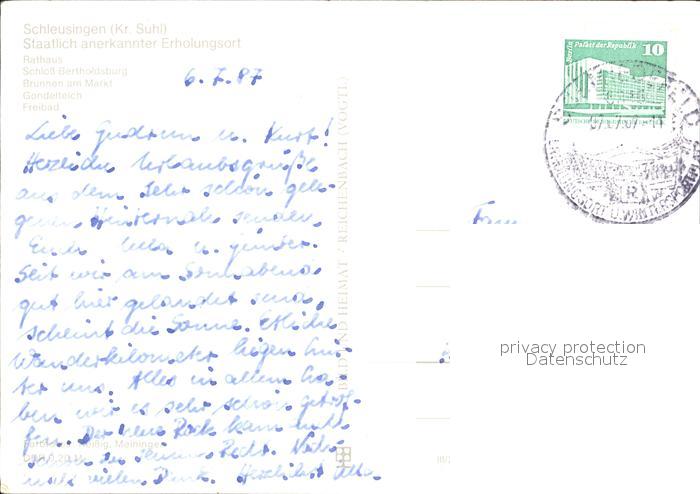 Schleusingen (Kr. Suhl)
Staatlich anerkannter Erholungsort
Rathaus
Schloß Bertholdsburg
Brunnen am Markt
Gondelteich
Freibad
6.7.87
Liebe Gudrun u. Kurt!
Herzliche Urlaubsgrüße
aus dem sehr schön gele-
genen senden
Euch u. Günter.
Seit wir am Sonnabend
gut hier gelandet sind,
scheint die Sonne. Etliche
Wanderkilometer liegen hin-
ter uns. Alles in allem ha-
ben wir es sehr schön getrof-
fen. Der neue Rock kam auch
schon zu seinem Recht. Noch-
mals vielen Dank. Herzlichst
BILD UND HEIMAT · REICHENBACH (VOGTL)
Berlin Palast der Republik
10
Fam
privacy protection
Datenschutz